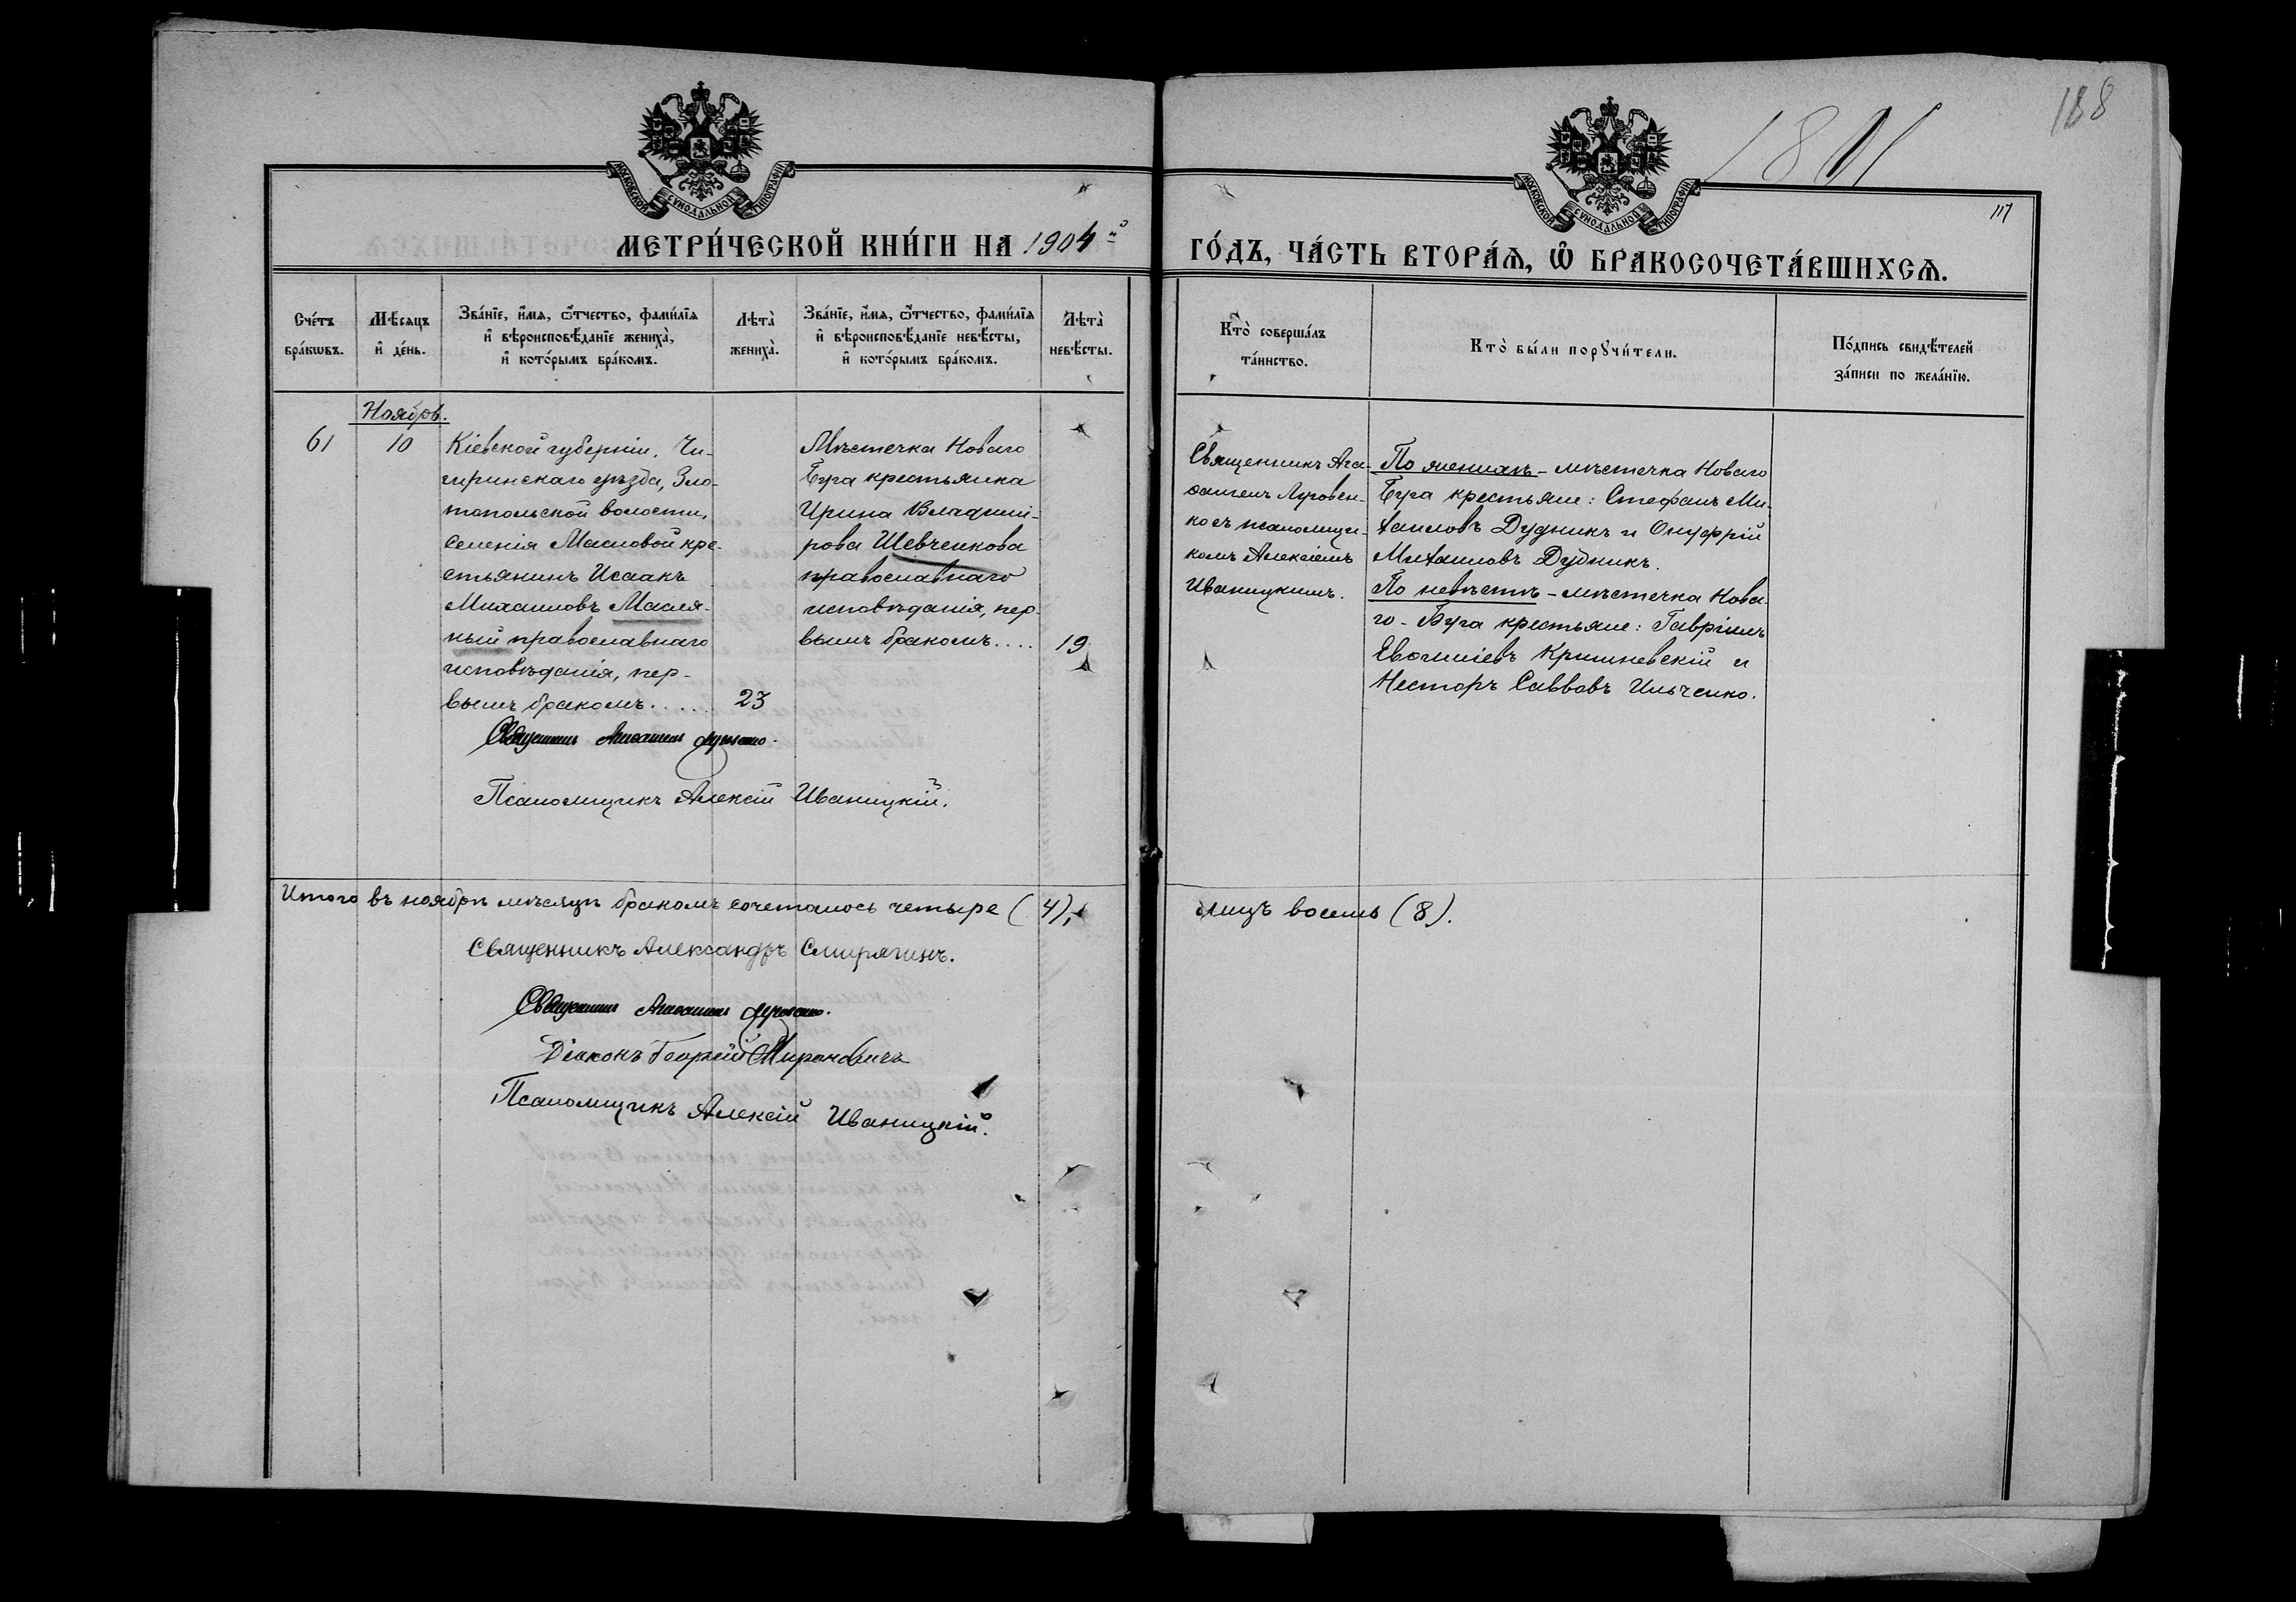 188
1801
117
МОСКОВСКОЙ СѴНОДАЛЬНОЙ ТИПОГРАФІИ
МОСКОВСКОЙ СѴНОДАЛЬНОЙ ТИПОГРАФІИ
МЕТРИ́ЧЕСКОЙ КНИ́ГИ НА 1904й
ГО́ДЪ, ЧА́СТЬ ВТОРА́Ѧ, Ѽ БРАКОСОЧЕТА́ВШИХСѦ.
Сче́тъ
бра́кѡвъ.
Мѣ́сяцъ
и҆ де́нь.
Зва́нїе, и҆́мѧ, ѻ҆́тчество, фами́лїѧ
и҆ вѣроисповѣ́данїе жениха̀,
и҆ кото́рымъ бра́комъ.
Лѣта̀
жениха̀.
Зва́нїе, и҆́мѧ, ѻ҆́тчество, фами́лїѧ
и҆ вѣроисповѣ́данїе невѣ́сты,
и҆ кото́рымъ бра́комъ.
Лѣта̀
невѣ́сты.
Кто̀ соверша́лъ
та́инство.
Кто̀ бы́ли порꙋчи́тели.
По́дпись свидѣ́телей
за́писи по жела́нїю.
Ноябрь.
61
10
Кіевской губерніи, Чи-
гиринскаго уѣзда, Зло-
топольской волости,
селенія Масловой кре-
стьянинъ Исаакъ
Михаиловъ Масля-
ный православнаго
исповѣданія, пер-
вымъ бракомъ......
23
Мѣстечка Новаго
Буга крестьянка
Ирина Владимі-
рова Шевченкова
православнаго
исповѣданія, пер-
вымъ бракомъ....
19
Священникъ Ага-
ѳангелъ Луговен-
ко съ псаломщи-
комъ Алексіемъ
Иваницкимъ.
По женихѣ - мѣстечка Новаго
Буга крестьяне: Стефанъ Ми-
хаиловъ Дудникъ и Онуфрій
Михаиловъ Дудникъ.
По невѣстѣ - мѣстечка Нова-
го-Буга крестьяне: Гавріилъ
Евѳиміевъ Кришневскій и
Несторъ Саввовъ Ильченко.
Священникъ Агаѳангелъ Луговенко.
Псаломщикъ Алексій Иваницкій.
Итого въ ноябрѣ мѣсяцѣ бракомъ сочеталось четыре (4),
лицъ восемь (8).
Священникъ Александръ Смирягинъ.
Священникъ Агаѳангелъ Луговенко.
Діаконъ Георгій Мироновичъ
Псаломщикъ Алексій Иваницкій.